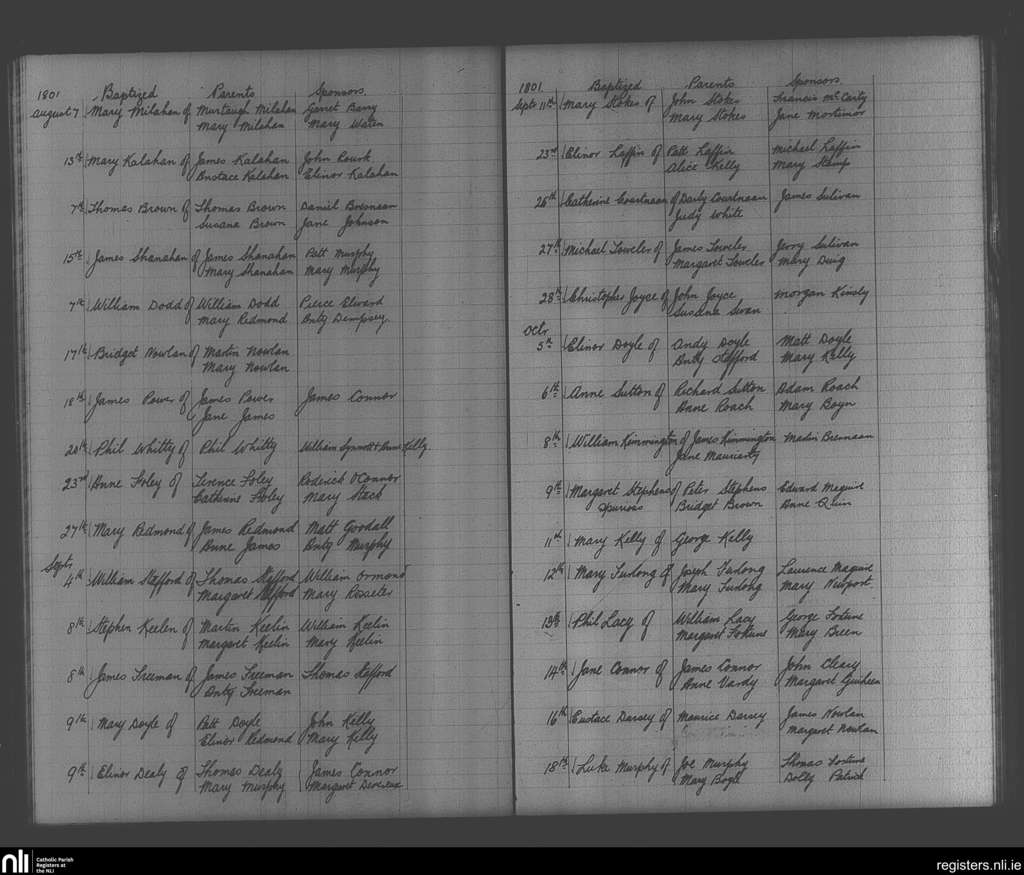 1801 Baptized Parents Sponsors
August 7 Mary Milahan of Murtaugh Milahan Garret Barry
Mary Milahan Mary Waten
13th Mary Kalahan of James Kalahan John Rourk
Anstace Kalahan Elinor Kalahan
7th Thomas Brown of Thomas Brown Daniel Brennan
Susana Brown Jane Johnson
15th James Shanahan of James Shanahan Patt Murphy
Mary Shanahan Mary Murphy
7th William Dodd of William Dodd Pierce Elward
Mary Redmond Anty Dempsey
17th Bridget Nowlan of Martin Nowlan
Mary Nowlan
18th James Power of James Power James Connor
Jane James
20th Phil Whitty of Phil Whitty William Synnott & Anne Kelly
23rd Anne Foley of Terence Foley Roderick O'Connor
Catherine Foley Mary Steck
27th Mary Redmond of James Redmond Matt Goodall
Anne James Anty Murphy
Sept.
4th William Stafford of Thomas Stafford William Ormond
Margaret Stafford Mary Rossiter
8th Stephen Keelen of Martin Keelin William Keelin
Margaret Keelin Mary Keelin
8th James Freeman of James Freeman Thomas Stafford
Anty Freeman
9th Mary Doyle of Patt Doyle John Kelly
Elinor Redmond Mary Kelly
9th Elinor Dealy of Thomas Dealy James Connor
Mary Murphy Margaret Devereux
1801 Baptized Parents Sponsors
Sept 11th Mary Stokes of John Stokes Francis McCarty
Mary Stokes Jane Mortimor
23rd Elinor Laffin of Patt Laffin Michael Laffin
Alice Kelly Mary Stamp
26th Catherine Courtnaan of Darly Courtnaan James Sulivan
Judy White
27th Michael Fowler of James Fowler Jerry Sulivan
Margaret Fowler Mary Duig
28th Christopher Joyce of John Joyce Morgan Kinsly
Susana Swan
Octr
5th Elinor Doyle of Andy Doyle Matt Doyle
Anty Stafford Mary Kelly
6th Anne Sutton of Richard Sutton Adam Roach
Anne Roach Mary Boyn
8th William Kimmington of James Kimmington Martin Brennaan
Jane Mauriarty
9th Margaret Stephens of Peter Stephens Edward Maguire
Spurious Bridget Brown Anne Quin
11th Mary Kelly of George Kelly
12th Mary Furlong of Joseph Furlong Laurence Maguire
Mary Furlong Mary Nuport
13th Phil Lacy of William Lacy George Fortune
Margaret Fortune Mary Breen
14th Jane Connor of James Connor John Cleary
Anne Vardy Margaret Guiheen
16th Eustace Darsey of Maurice Darsey James Nowlan
Margaret Nowlan
18th Luke Murphy of Joe Murphy Thomas Fortune
Mary Bogle Dolly Patrick
nli Catholic Parish
Registers at
the NLI
registers.nli.ie